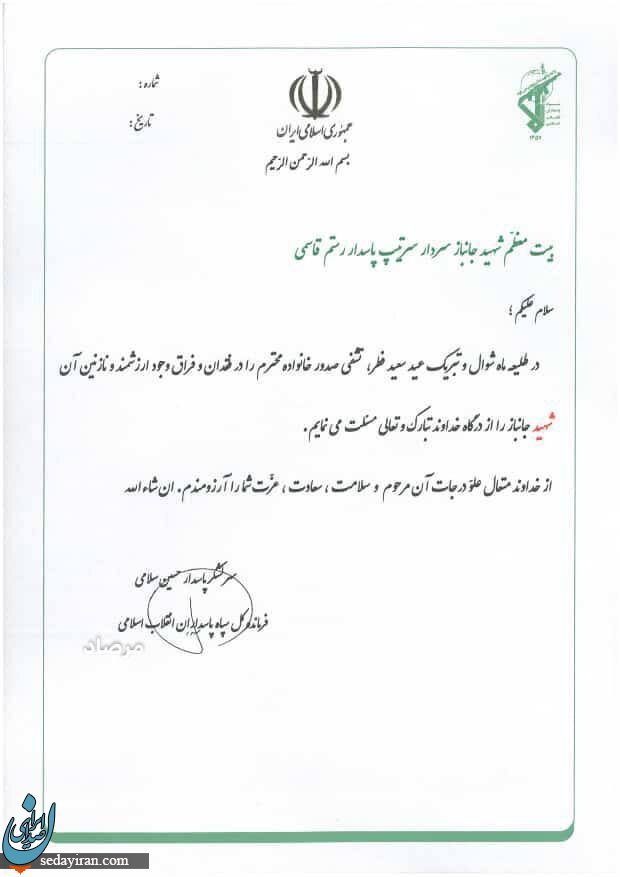 شماره :
تاریخ :
جمهوری اسلامی ایران
بسم الله الرحمن الرحیم
۱۳۵۷
بیت معظّم شهید جانباز سردار سرتیپ پاسدار رستم قاسمی
سلام علیکم ؛
در طلیعه ماه شوال و تبریک عید سعید فطر، تشفی صدور خانواده محترم را در فقدان و فراق وجود ارزشمند و نازنین آن
شهید جانباز را از درگاه خداوند تبارک و تعالی مسئلت می نمایم .
از خداوند متعال علوّ درجات آن مرحوم و سلامت ، سعادت ، عزّت شما را آرزومندم . ان شاء الله
سرلشکر پاسدار حسین سلامی
فرمانده کل سپاه پاسداران انقلاب اسلامی
مرصاد
صدای ایران
sedayiran.com